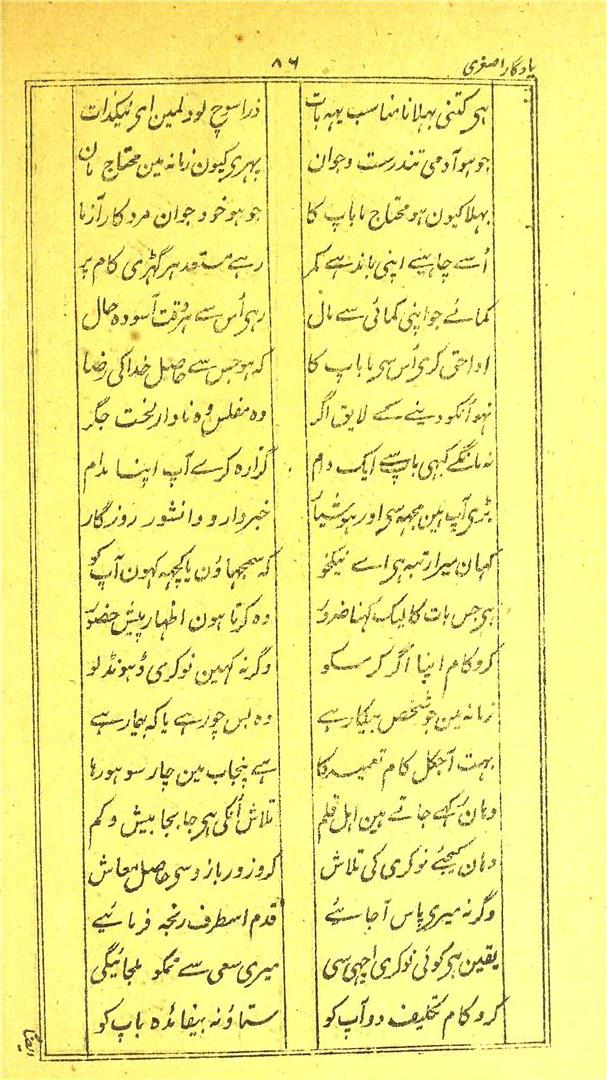 یادگار اصغری
۸۶
ہی کتنی بہلا نامناسب یہہ بات ذرا سوچ لو دلمین ای نیکذات
جو ہو آدمی تندرست و جوان پہری کیون زمانہ مین محتاج نان
بہلا کیون ہو محتاج ماباپ کا جو ہو خود جوان مرد کار آزما
اُسے چاہیئے اپنی باندہے کمر رہے مستعد ہر گہڑی کام پر
کمائے جو اپنی کمائی سے مال رہی اُس سے ہر وقت آسودہ حال
ادا حق کری اُس سی ماباپ کا کہ ہو جس سے حاصل خدا کی رضا
نہو آنکو دینے کے لایق اگر وہ مفلس وہ نادار لخت جگر
نہ مانگے کبہی باپ سے ایک دام گزارہ کرے آپ اپنا مدام
بڑی آپ ہین مجہہ سی اور ہوشیار خبردار و دانشور روزگار
کہان میرا رتبہ ہی اے نیکخو کہ سمجہاؤن یا کچہہ کہون آپ کو
ہی جس بات کا لیک کہنا ضرور وہ کرتا ہون اظہار پیش حضور
کرو کام اپنا اگر کر سکو وگرنہ کہین نوکری ڈہونڈ لو
زمانہ مین جو شخص بیکار ہے وہ بس چور ہے یا کہ بیمار ہے
بہت آجکل کام تعمیر کا ہے پنجاب مین چار سو ہو رہا
وہان رکہے جاتے ہین اہل قلم تلاش اُنکی ہی جا بجا بیش و کم
وہان کیجئے نوکری کی تلاش کرو زور بازو سی حاصل معاش
وگرنہ میری پاس آ جائیے قدم اسطرف رنجہ فرمائیے
یقین ہی کوئی نوکری اچہی سی میری سعی سے تمکو ملجائیگی
کرو کام تکلیف دو آپ کو ستاؤ نہ بیفائدہ باپ کو